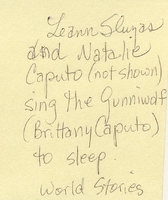 Leann Slugas
and Natalie
Caputo (not shown)
sing the Gunniwolf
(Brittany Caputo)
to sleep.
World Stories